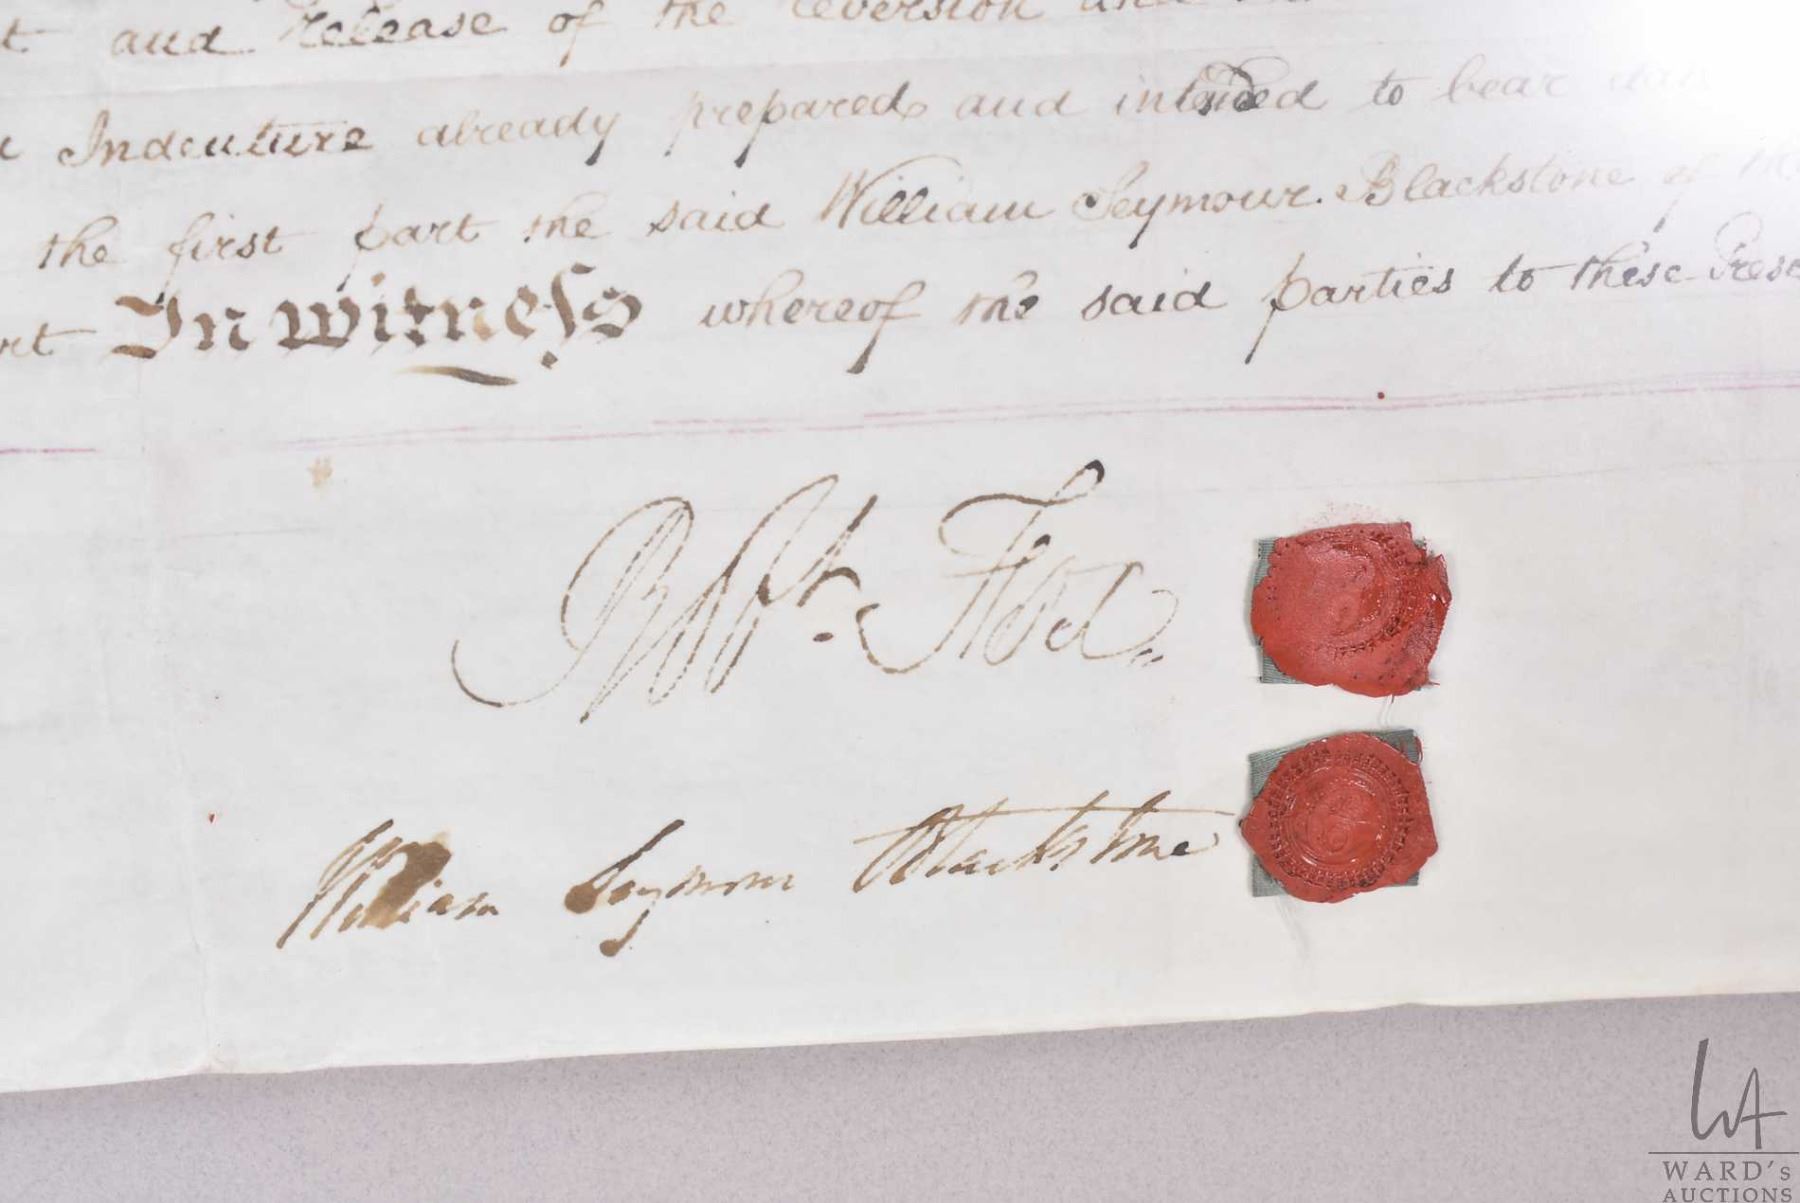 t and Release of the reversion and
Indenture already prepared and intended to bear date
the first part the said William Seymour Blackstone of the
rt In witness whereof the said parties to these Prese
Flood
William Seymour Blackstone
WA
WARD's
AUCTIONS